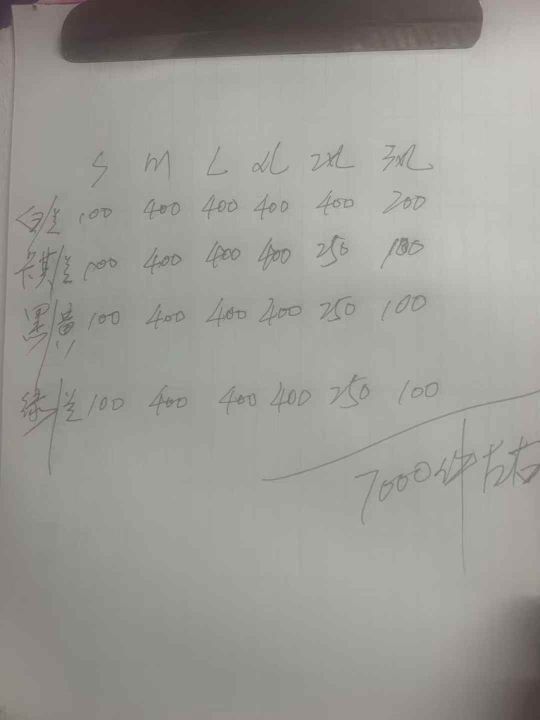 S M L XL 2XL 3XL
白/兰 100 400 400 400 400 200
卡其/兰 100 400 400 400 250 100
黑/黄 100 400 400 400 250 100
绿/兰 100 400 400 400 250 100
7000件左右